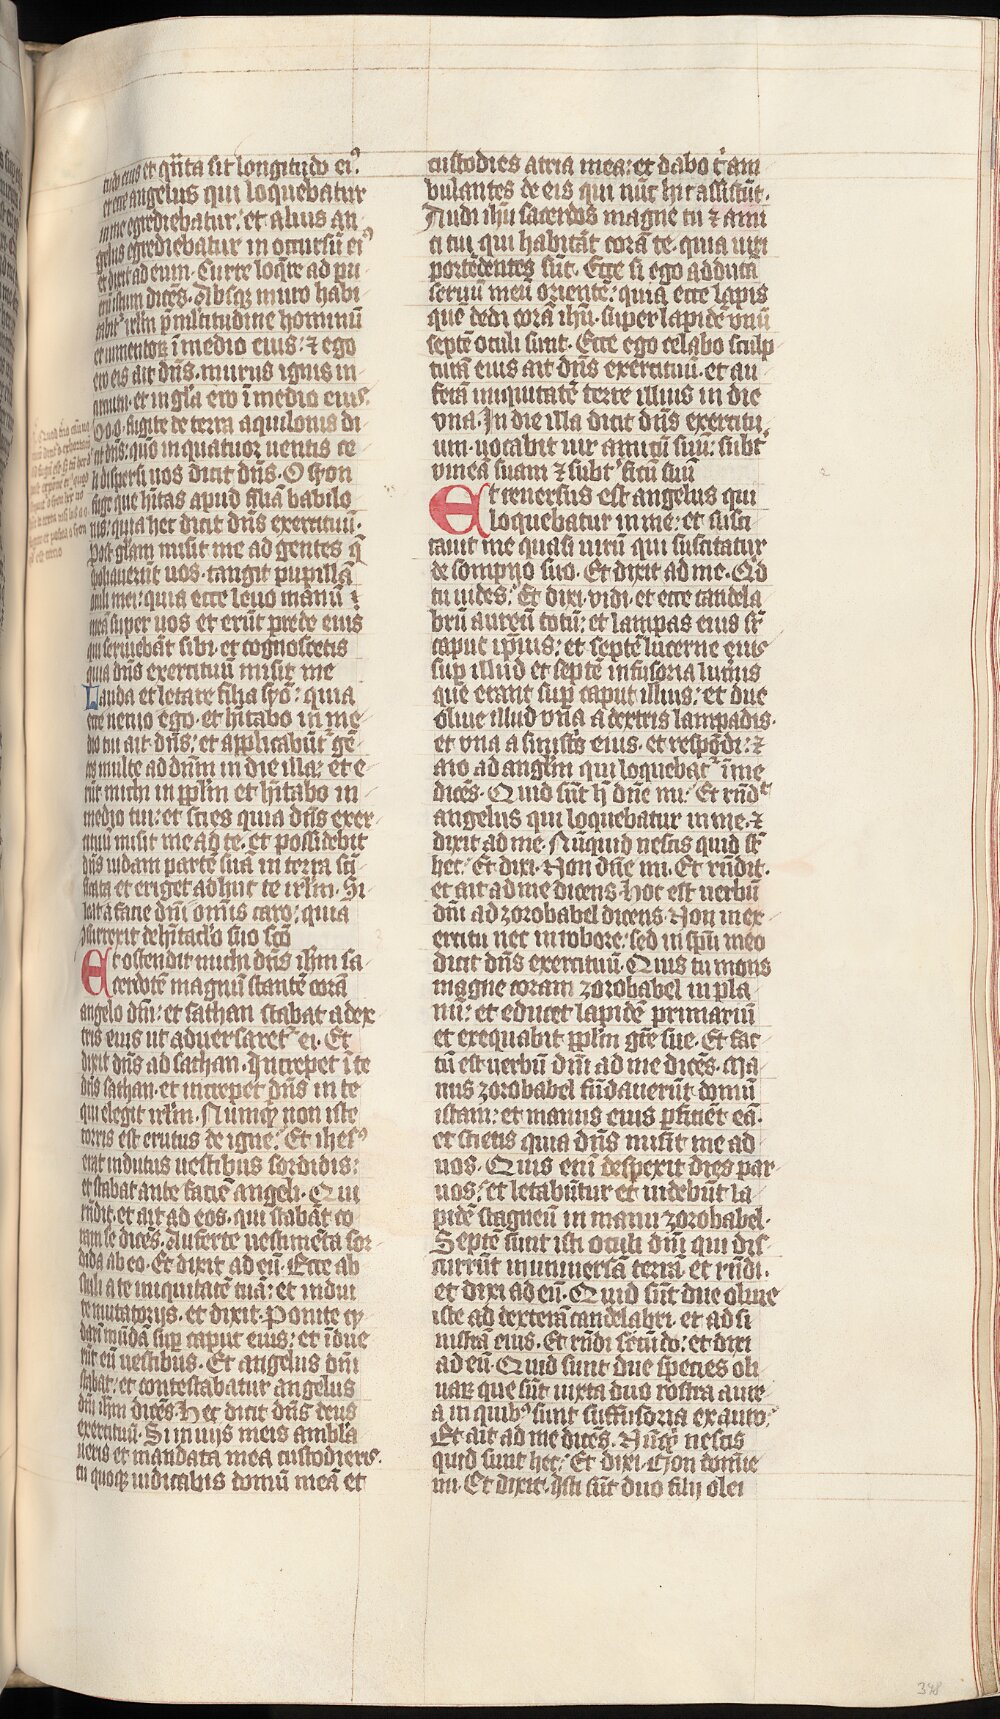 tudo eius et qñta sit longitudo ei⁹
et ecce angelus qui loquebatur
in me egrediebatur: et alius an
gelus egrediebatur in occursũ ei⁹
et dixit ad eum. Curre loqr̃e ad pu
erũ istum dicẽs. Absqꝫ muro habi
tabit᷑ irl̃m p̃ multitudine hominũ
et iumentoꝝ ĩ medio eius: ⁊ ego
ero eis ait dñs. murus ignis in
circuitu. et in gl̃a ero ĩ medio eius.
O o. fugite de terra aquilonis di
cit dñs: qm̃ in quatuor uentis ce
li dispersi uos dicit dñs. O syon
fuge que hĩtas apud filiã babilo
nis: quia hec dicit dñs exercituũ.
Post gl̃am misit me ad gentes q̃
spoliauerũt uos. tangit pupillã
oculi mei: quia ecce leuo manũ
meã super uos et erũt prede eius
qui seruiebãt sibi. et cognoscetis
quia dñs exercituũ misit me
Lauda et letare filia syõ: quia
ecce uenio ego. et hĩtabo in me
dio tui ait dñs: et applicabũt᷑ gẽ
tes multe ad dñm in die illa: et e
rũt michi in ppl̃m et hĩtabo in
medio tui: et scies quia dñs exer
cituũ misit me ad te. et possidebit
dñs iudam partẽ suã in terra sc̃i
ficata et eriget adhuc te irl̃m. Si
leat a facie dñi om̃is caro: quia
ↄsurrexit de hĩtacl̃o suo sc̃o
Et ostendit michi dñs ihm̃ sa
cerdotẽ magnũ stantẽ corã
angelo dñi: et sathan stabat a dex
tris eius ut aduersaret᷑ ei. Et
dixit dñs ad sathan. Increpet ĩ te
dñs sathan. et increpet dñs in te
qui elegit irl̃m. Numq̃ non iste
torris est erutus de igne? Et ihes⁹
erat indutus uestibus sordidis:
et stabat ante faciẽ angeli. Qui
rñdit. et ait ad eos. qui stabãt co
ram se dicẽs. Auferte uestimẽta sor
dida ab eo. Et dixit ad eũ. Ecce ab
stuli a te iniquitatẽ tuã: et indui
te mutatorijs. et dixit. Ponite cy
darĩ mũdã sup̃ caput eius: et ĩdue
rũt eũ uestibus. Et angelus dñi
stabat: et contestabatur angelus
dñi ihm̃ dicẽs. Hec dicit dñs deus
exercituũ. Si in uijs meis ambl̃a
ueris et mandata mea custodieris.
tu quoqꝫ iudicabis domũ meã et
custodies atria mea: et dabo t᷑ am
bulantes de eis qui nũc hic assistũt.
Audi ihũ sacerdos magne tu ⁊ ami
ci tui qui habitãt corã te. quia uiri
portẽdentes sũt. Ecce si ego adducã
seruũ meũ orientẽ: quia ecce lapis
quẽ dedi corã ihũ. super lapidẽ vnũ
septẽ oculi sunt. Ecce ego celabo sculp
turã eius ait dñs exercituũ. et au
ferã iniquitatẽ terre illius in die
vna. In die illa dicit dñs exercitu
um. uocabit uir amicũ suũ: subt᷑
vineã suam ⁊ subt᷑ ficũ suũ
Et reuersus est angelus qui
loquebatur in me: et susci
tauit me quasi uirũ qui suscitatur
de sompno suo. Et dixit ad me. Qd
tu uides? Et dixi. vidi. et ecce candela
brũ aureũ totũ: et lampas eius sr̃
caput ip̃ius: et septẽ lucerne eius
sup̃ illud et septẽ infusoria lucnis
que erant sup̃ caput illius: et due
oliue illud vna a dextris lampadis.
et vna a sinistr̃s eius. et respõdi: ⁊
aio ad angl̃m qui loquebat᷑ ĩ me
dicẽs. Quid sũt h̃ dñe mi? Et rñdt᷑
angelus qui loquebatur in me. ⁊
dixit ad me. Nũquid nescis quid sũt
hec? Et dixi. Non dñe mi. Et rñdit.
et ait ad me dicens. Hoc est uerbũ
dñi ad zorobabel dicens. Non in ex
ercitu nec in robore: sed in spũ meo
dicit dñs exercituũ. Quis tu mons
magne coram zorobabel in pla
nũ: et educet lapidẽ primariũ
et exequabit ppl̃m gr̃e sue. Et fac
tũ est uerbũ dñi ad me dicẽs. Ma
nus zorobabel fũdauerũt domũ
istam: et manus eius ꝑficiẽt eã.
et scietis quia dñs misit me ad
uos. Quis enĩ despexit dies par
uos? et letabũtur et uidebũt la
pidẽ stagneũ in manu zorobabel.
Septẽ sunt isti oculi dñi qui dis
currũt in uniuersã terrã et rñdi.
et dixi ad eũ. Quid sũt due oliue
iste ad dexterã candelabri. et ad si
nistrã eius. Et rñdi secũdo: et dixi
ad eũ. Quid sunt due species oli
uarꝫ que sũt iuxta duo rostra aure
a in quib⁹ sunt suffusoria ex auro?
Et ait ad me dicẽs. Nũq̃ nescis
quid sunt hec? Et dixi. Non domĩe
mi. Et dixit. Isti sũt duo filij olei
348